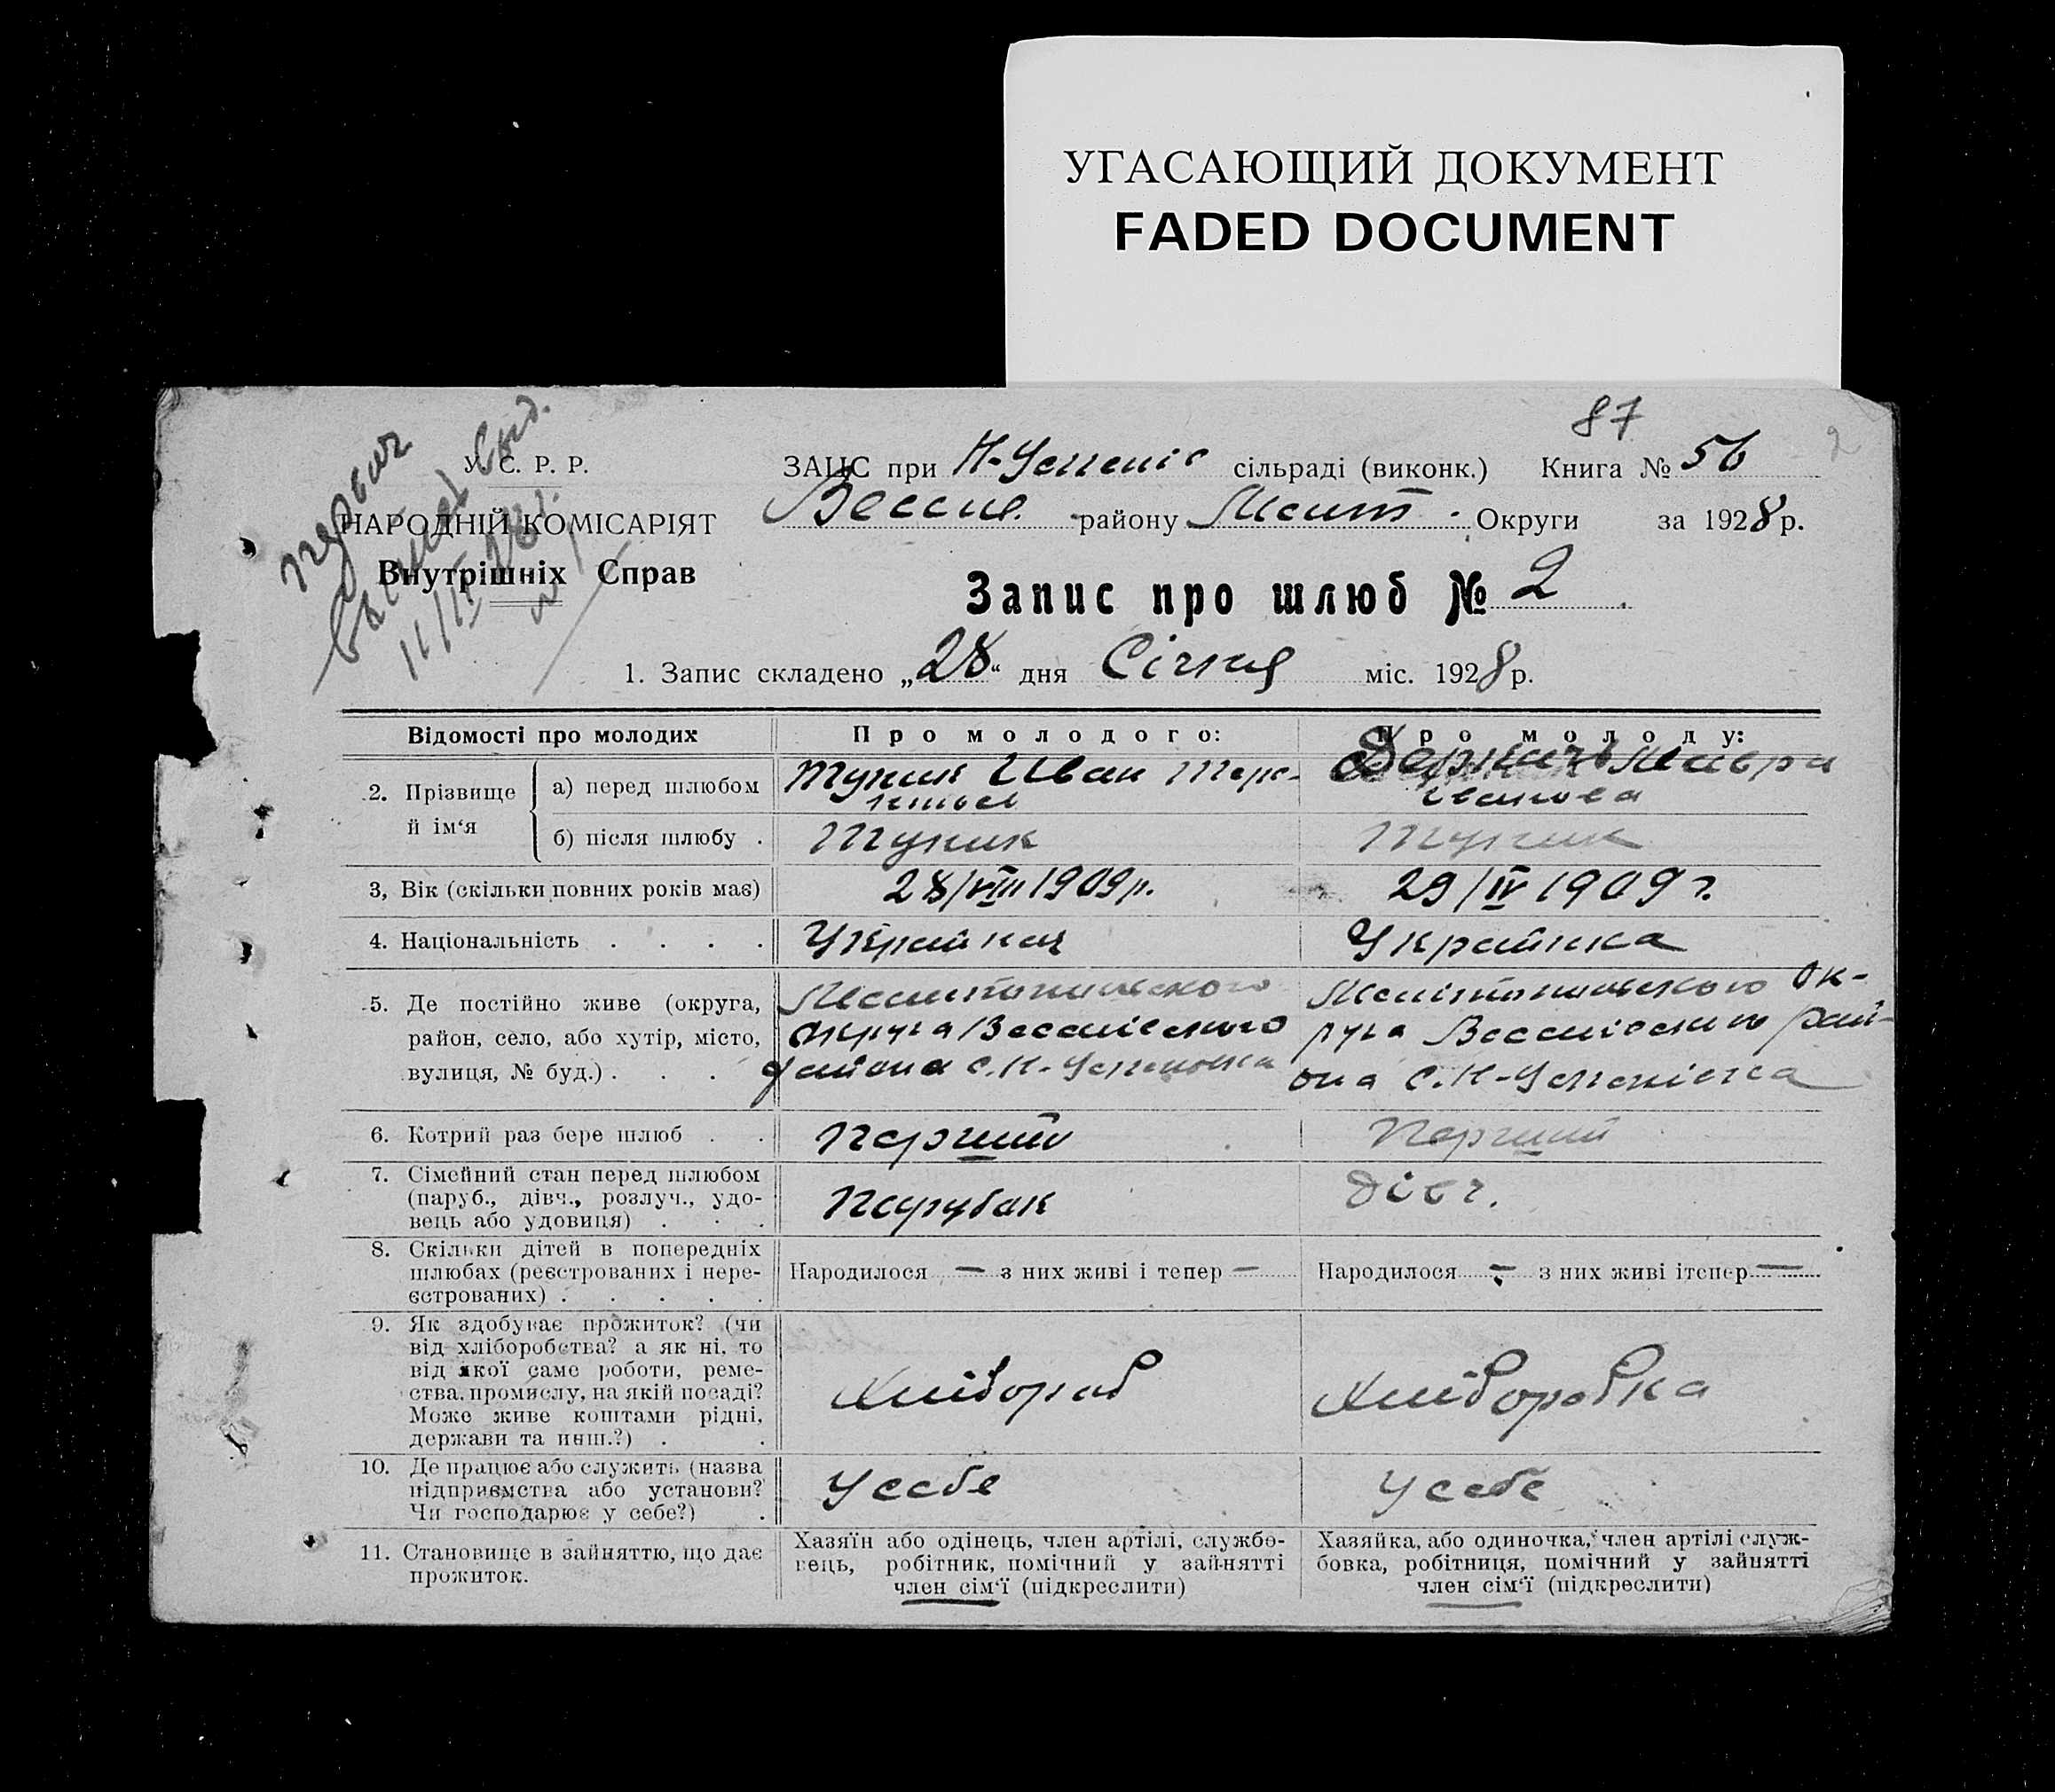 УГАСАЮЩИЙ ДОКУМЕНТ
FADED DOCUMENT
87
2
У. С. Р. Р.
НАРОДНІЙ КОМІСАРІЯТ
Внутрішніх Справ
ЗАЦС при Н-Успеніс сільраді (виконк.) Книга № 56
Весел. району Меліт. Округи за 1928 р.
Запис про шлюб № 2
1. Запис складено „28“ дня Січня міс. 1928 р.
Відомості про молодих
Про молодого:
Про молоду:
2. Прізвище й ім‘я
а) перед шлюбом
Тупик Иван
Мавра
Іванова
б) після шлюбу .
Тупик
Тупик
3, Вік (скільки повних років має)
28/VIII 1909 р.
29/IV 1909 г.
4. Національність . . . .
Українец
Українка
5. Де постійно живе (округа,
район, село, або хутір, місто,
вулиця, № буд.) . . . .
Мелитопильского
округа Веселівского
района с. Н-Успеновка
Мелітопильского ок-
руга Веселівского рай-
она с. Н-Успенівка
6. Котрий раз бере шлюб . .
Перший
Перший
7. Сімейний стан перед шлюбом
(паруб., дівч., розлуч., удо-
вець або удовиця) . . .
Парубак
Дівч.
8. Скільки дітей в попередніх
шлюбах (реєстрованих і нере-
єстрованих) . . . . .
Народилося — з них живі і тепер —
Народилося — з них живі ітепер —
9. Як здобуває прожиток? (чи
від хліборобства? а як ні, то
від якої саме роботи, реме-
ства, промислу, на якій посаді?
Може живе коштами рідні,
держави та инш.?) . .
Хлібораб
Хліборобка
10. Де працює або служить (назва
підприємства або установи?
Чи господарює у себе?) .
У себе
У себе
11. Становище в зайняттю, що дає
прожиток.
Хазяїн або одінець, член артілі, службо-
вець, робітник, помічний у зайнятті
член сім‘ї (підкреслити)
Хазяйка, або одиночка, член артілі служ-
бовка, робітниця, помічний у зайнятті
член сім‘ї (підкреслити)